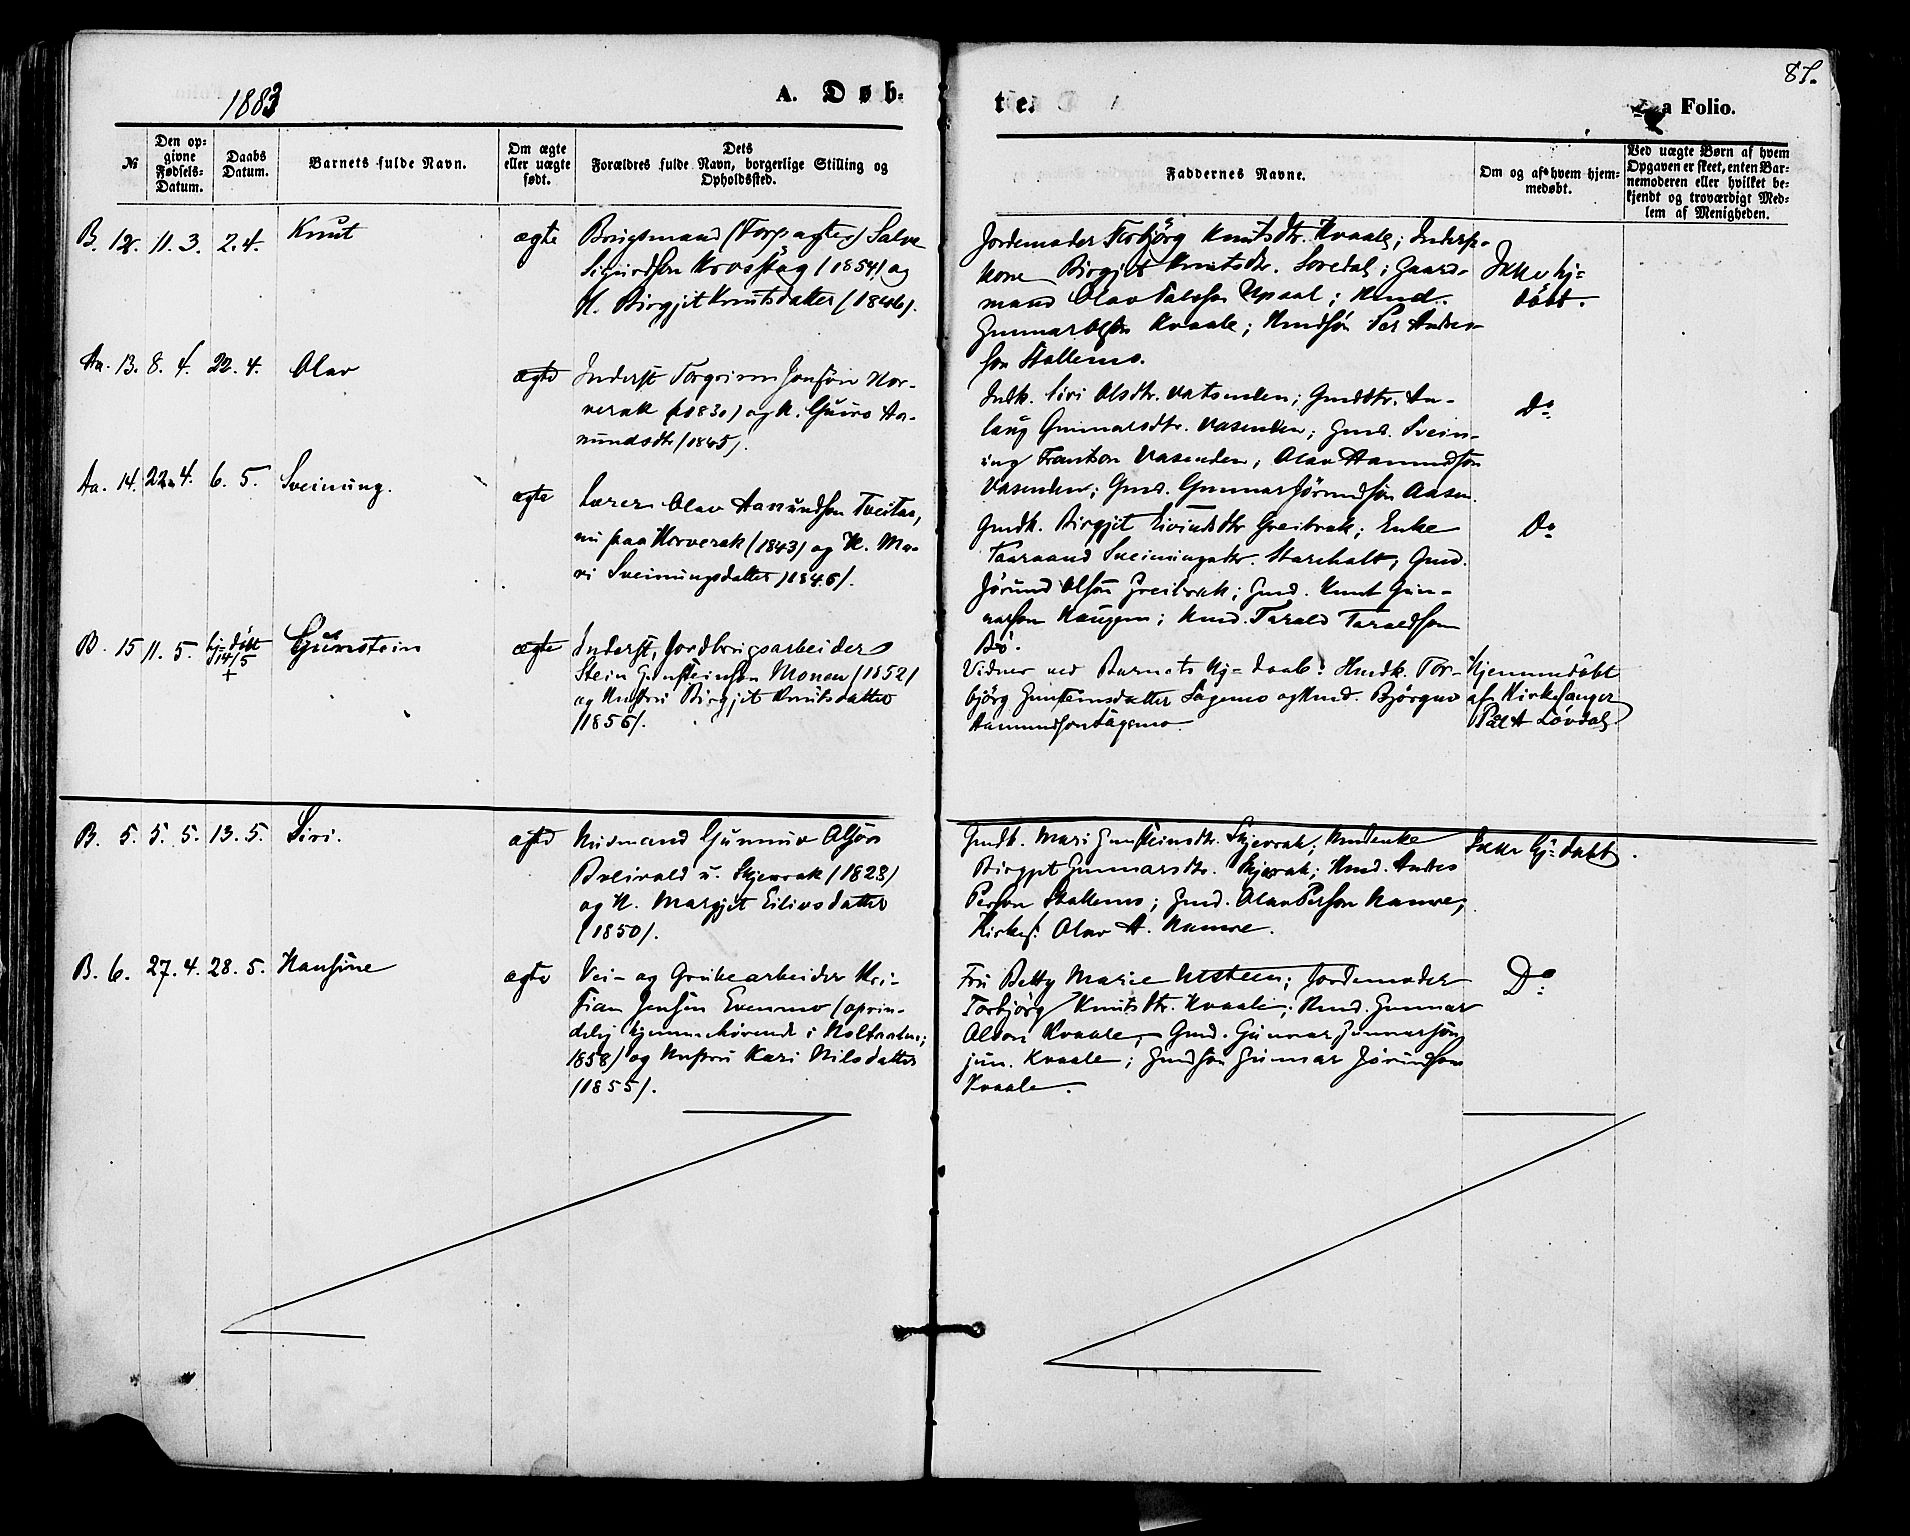 87.
1883
A. Døb-
te.
a Folio.
№
Den op-
givne
Fødsels-
Datum.
Daabs
Datum.
Barnets fulde Navn.
Om ægte
eller uægte
født.
Dets
Forældres fulde Navn, borgerlige Stilling og
Opholdssted.
Faddernes Navne.
Om og af hvem hjem-
medøbt.
Ved uægte Børn af hvem
Opgaven er skeet, enten Bar-
nemoderen eller hvilket be-
kjendt og troværdigt Med-
lem af Menigheden.
B. 12. 11. 3. 2. 4. Knut
ægte
Brugsmand (Forpagter) Salve
Sigurdsen Krosstøg (1854) og
K. Birgjit Knutsdatter (1846).
Jordemoder Torbjörg Knutsdtr. Kvaale; Inderst-
kone Birgjit Knutsdtr. Lovdal; Gaard-
mand Olav Salvesen Upsal; Kmd.
Gunnar Olsen Kvaale; Kmdsön Per Anders-
son Stallemo.
Ikke hj-
döbt.
Aa. 13. 8. 4. 22. 4. Olav
ægte
Inderst Torgrim Jonsön Hor-
verak (1830) og K. Guro Aa-
mundsdtr (1845).
Indk. Siri Olsdtr. Vatsenden; Gmdtr. As-
laug Gunnarsdtr. Vasenden; Gmd. Svein-
ung Vasenden; Olav Aamundsön
Vasenden; Gmd. Gunnar Jörundsön Aasen.
Do
Aa. 14. 22. 4. 6. 5. Sveinung.
ægte
Lærer Olav Aamundsen Tveitaa,
nu paa Horverak (1843) og K. Ma-
ri Sveinungsdatter (1846).
Gmdk. Birgjit Eivindsdtr Greibrok; Enke
Taaraand Sveinungsdtr. Starihalt; Gmd.
Jörund Olsön Greibrok; Gmd. Knut Gun-
narson Haugen; Kmd. Tarald Taraldson
Bö.
Do
B. 15 11. 5. hj-döbt 14/5 + Gunstein
ægte
Inderst, Jordbrugsarbeider
Stein Gunsteinsen Monen (1852)
og Hustru Birgjit Knutsdatter
(1856).
Vidner ved Barnets Hj-daab: Hmdk. Tor-
björg Gunsteinsdatter Sagemo og Kmd. Björgno
Aamundson Sagemo.
Hjemmedöbt
af Kirkesanger
Pål A. Lövdal.
B. 5. 5. 5. 13. 5. Siri.
ægte
Husmand Gunnuv Olsön
Breivald u. Skjevrak (1823)
og K. Margjit Eilivsdatter
(1850).
Gmdk. Mari Gunsteinsdtr. Skjevrak; Kmdenke
Birgjit Gunnarsdtr. Skjevrak; Kmd. Anders
Person Stallemo; Gmd. Olav Person Hamre;
Kirkes. Olav A. Hamre.
Ikke hj-döbt.
B. 6. 27. 4. 28. 5. Hansine
ægte
Vei- og Grubearbeider Kri-
stian Jensen Evenmo (oprin-
delig hjemmehörende i Holtaalen;
1858) og Hustru Kari Nilsdatter
(1855).
Fru Betty Marie Utsteen; Jordemoder
Torbjörg Knutsdtr. Kvaale; Kmd. Gunnar
Olson Kvaale; Gmd. Gunnar Gunnarsön
jun. Kvaale; Gmdsön Gunnar Jörundson
Kvaale.
Do